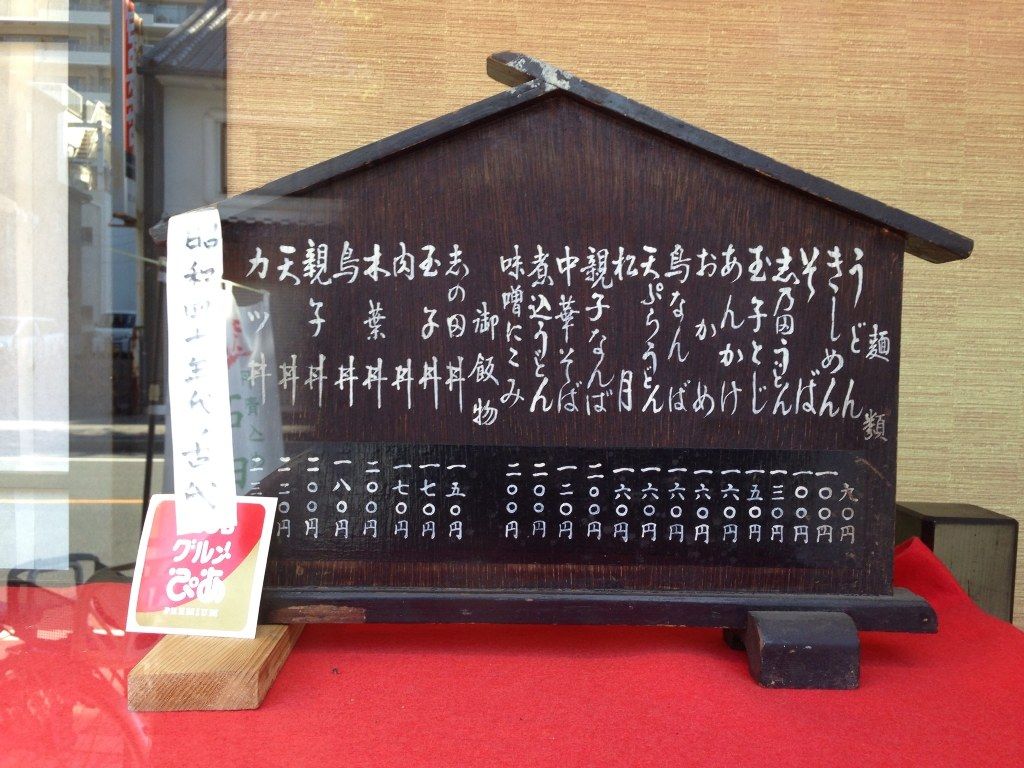 麺類
うどん 九〇円
きしめん 一〇〇円
そば 一〇〇円
志乃田うどん 一三〇円
玉子とじ 一五〇円
あんかけ 一六〇円
おかめ 一六〇円
鳥なんば 一六〇円
天ぷらうどん 一六〇円
松月 一六〇円
親子なんば 二〇〇円
中華そば 一二〇円
煮込うどん 二〇〇円
味噌にこみ 二〇〇円
御飯物
志の田丼 一五〇円
玉子丼 一七〇円
肉丼 一七〇円
木葉丼 二〇〇円
鳥丼 一八〇円
親子丼 二〇〇円
天丼 二二〇円
カツ丼 二三
昭和四十年代
グルメ
ぴあ
PREMIUM